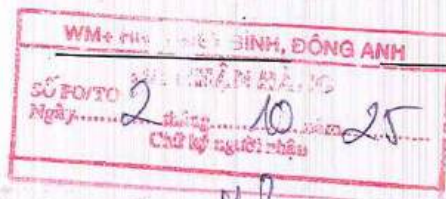 WM+ BÌNH, ĐÔNG ANH
NHẬN HÀNG
SỐ PO/TO
Ngày 2 tháng 10 năm 25
Chữ ký người nhận